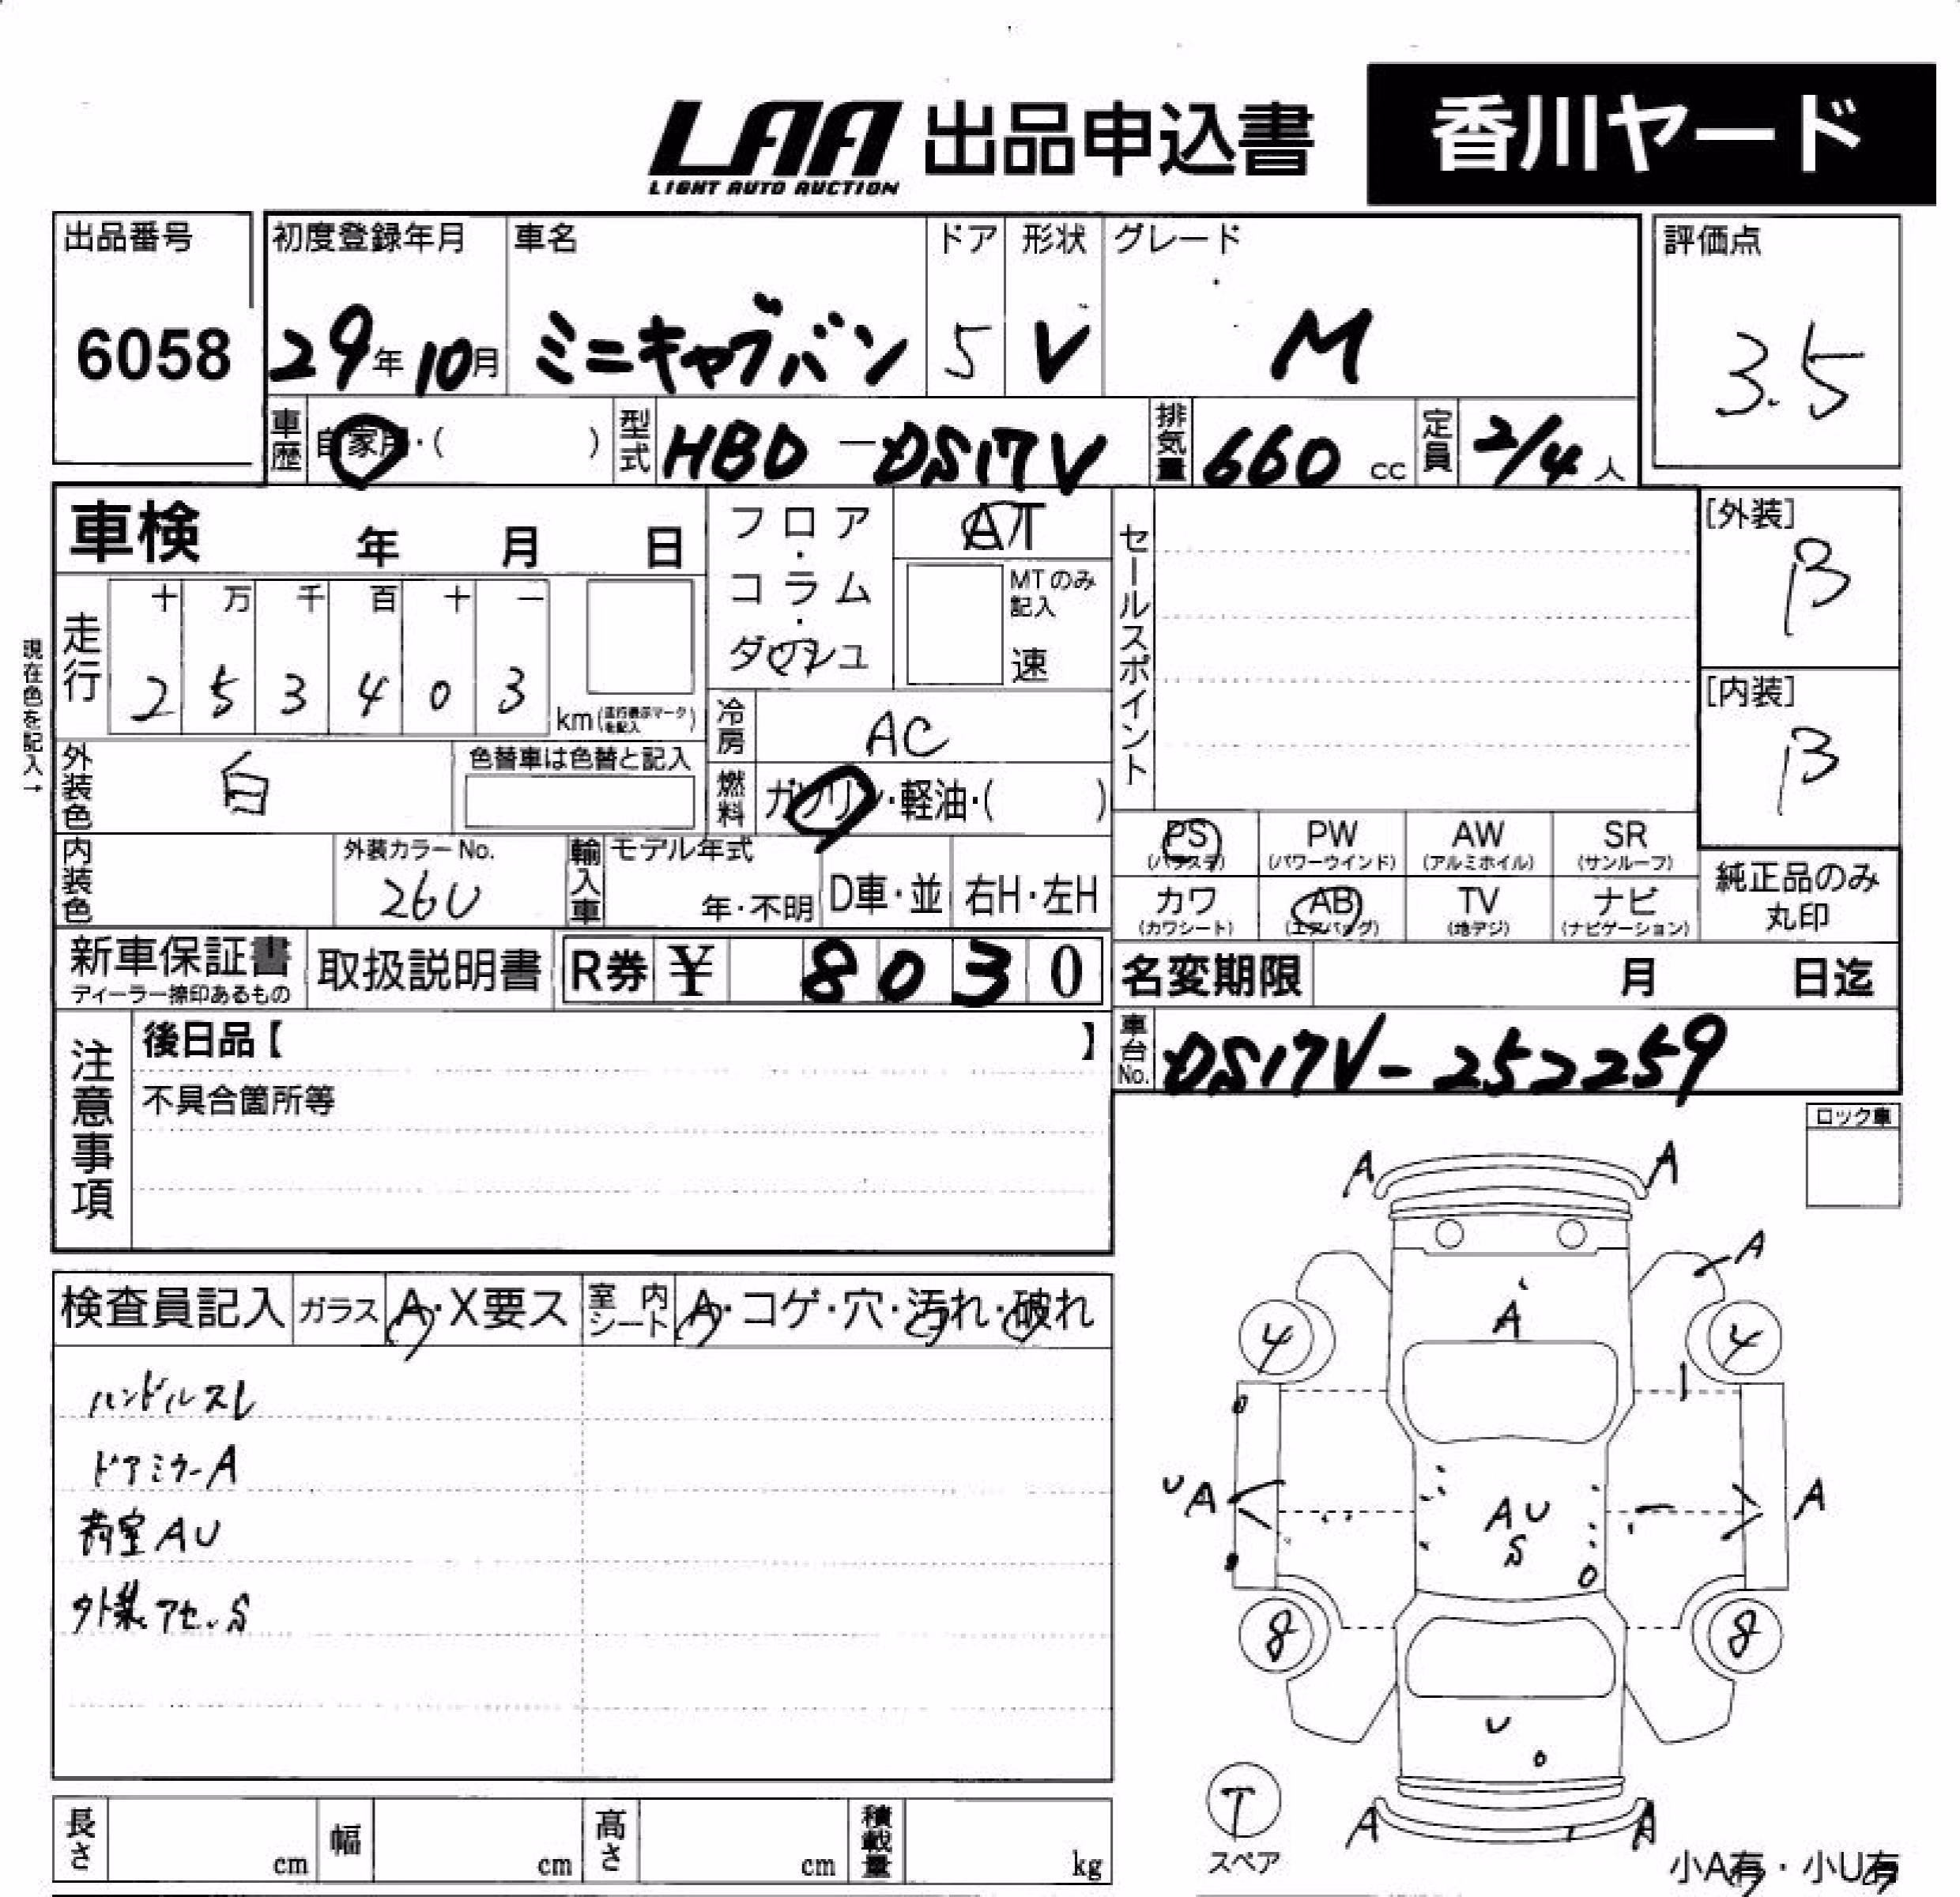 LAA 出品申込書
LIGHT AUTO AUCTION
香川ヤード
出品番号
6058
初度登録年月
29年10月
車名
ミニキャブバン
ドア
5
形状
V
グレード
M
評価点
3.5
車歴 自家用・( )
型式 HBD-DS17V
排気量 660 cc
定員 2/4 人
車検 年 月 日
フロア・コラム・ダッシュ
AT
MTのみ記入
速
セールスポイント
[外装]
B
[内装]
B
現在色を記入→
走行
十 万 千 百 十 一
2 5 3 4 0 3
km(走行表示マークを記入)
冷房 AC
外装色 白
色替車は色替と記入
燃料 ガソリン・軽油・( )
内装色
外装カラーNo.
26U
輸入車 モデル年式
年・不明 D車・並 右H・左H
PS (パワステ)
PW (パワーウインド)
AW (アルミホイル)
SR (サンルーフ)
カワ (カワシート)
AB (エアバッグ)
TV (地デジ)
ナビ (ナビゲーション)
純正品のみ丸印
新車保証書
ディーラー捺印あるもの
取扱説明書
R券 ¥ 8030
名変期限 月 日迄
車台No. DS17V-252259
注意事項
後日品【 】
不具合箇所等
ロック車
検査員記入 ガラス A・X要ス 室内シート A・コゲ・穴・汚れ・破れ
ハンドルスレ
ドアミラーA
荷室AU
外装アセ.S
A A
A
A
4 4
UA
AU
S
A
8 8
U
T
スペア
A A
長さ cm 幅 cm 高さ cm 積載量 kg
小A有・小U有